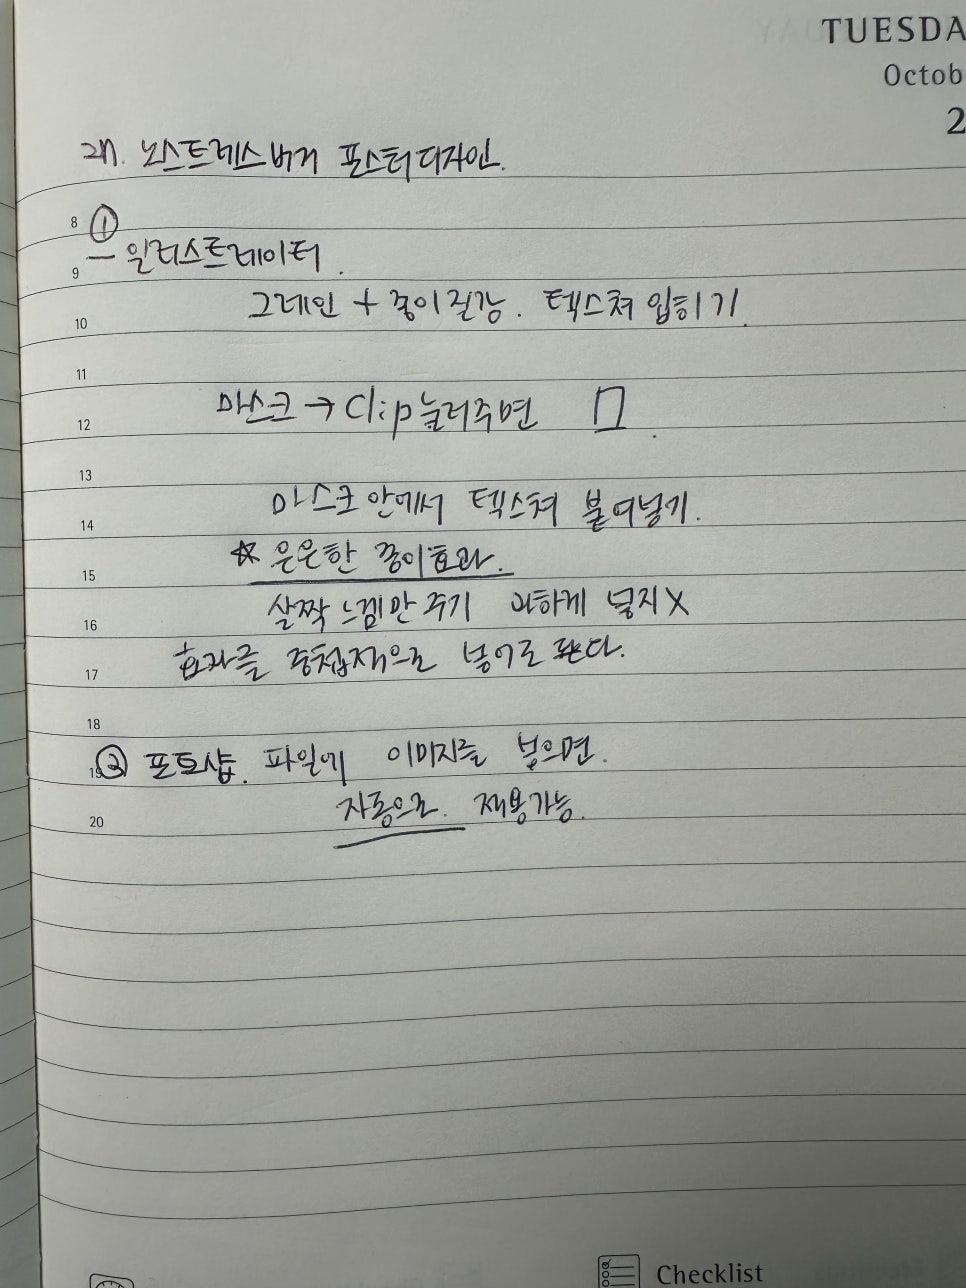 TUESDA
Octob
2
27. 노스트레스버거 포스터디자인.
8 ①
9 — 일러스트레이터.
10 그레인 + 종이질감. 텍스쳐 입히기.
11
12 마스크 → Clip눌러주면
13
14 마스크 안에서 텍스쳐 붙여넣기.
15 ☆ 은은한 종이효과.
16 살짝 느낌만 주기 과하게 넣지X
17 효과를 중첩적으로 넣어도 된다.
18
19 ② 포토샵. 파일에 이미지를 넣으면.
20 자동으로. 적용가능.
Checklist